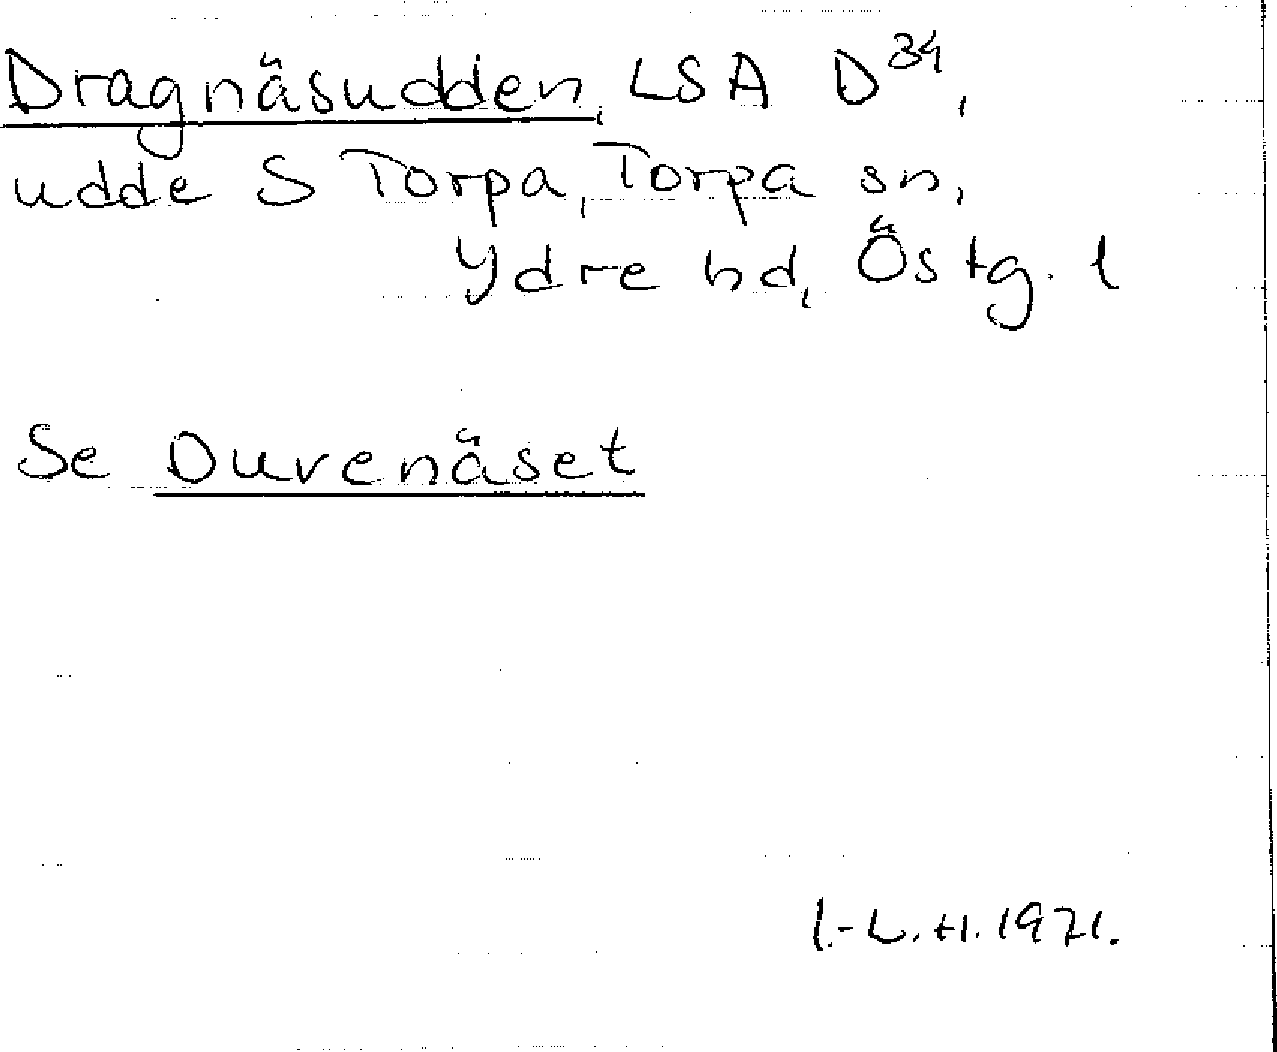 Dragnäsudden, LSA D34,
udde S Torpa, Torpa sn,
Ydre hd, Östg. l
Se Duvenäset
I.-L.H. 1971.